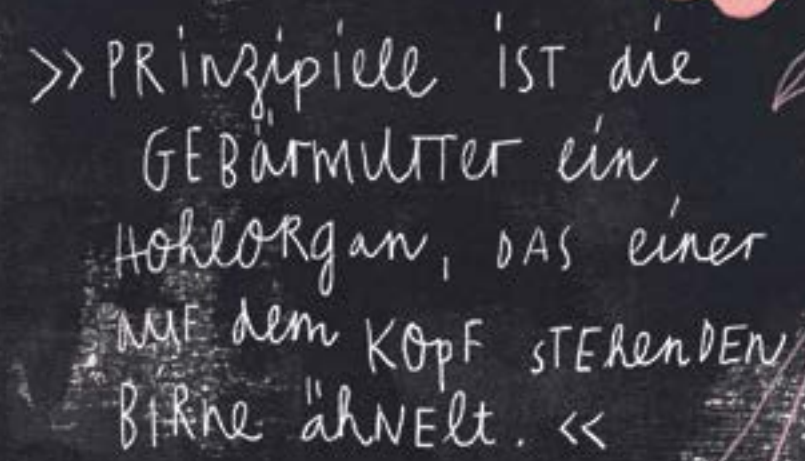 »PRinzipiell iST die
GEBärmUTTer ein
HohlORgan, DAS einer
AUF dem KOpF sTEhenDEN
BIRne ähNElt.«